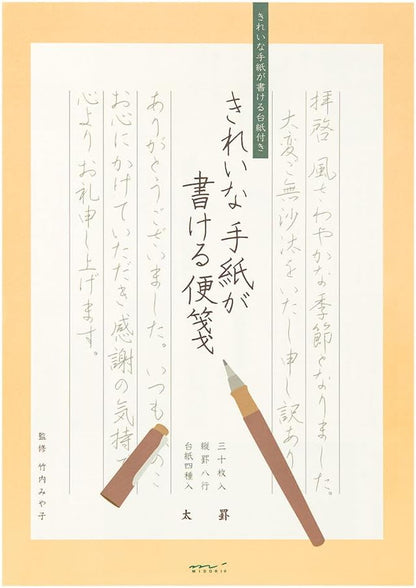 きれいな手紙が書ける台紙付き
拝啓 風さわやかな季節となりました。
大変ご無沙汰をいたし申し訳あり
きれいな手紙が
書ける便箋
ありがとうございました。いつも
お心にかけていただき感謝の気持
心よりお礼申し上げます。
三十枚入
縦罫八行
台紙四種入
太罫
監修 竹内みや子
MIDORI